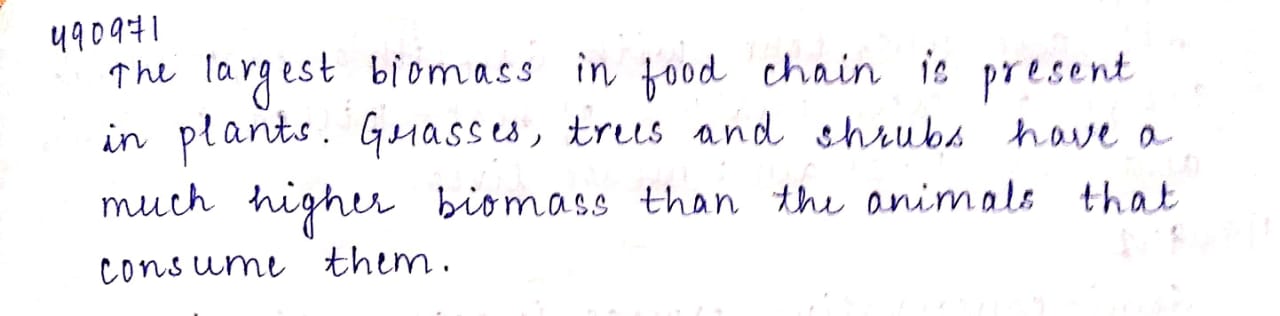 490971
The largest biomass in food chain is present
in plants. Grasses, trees and shrubs have a
much higher biomass than the animals that
consume them.